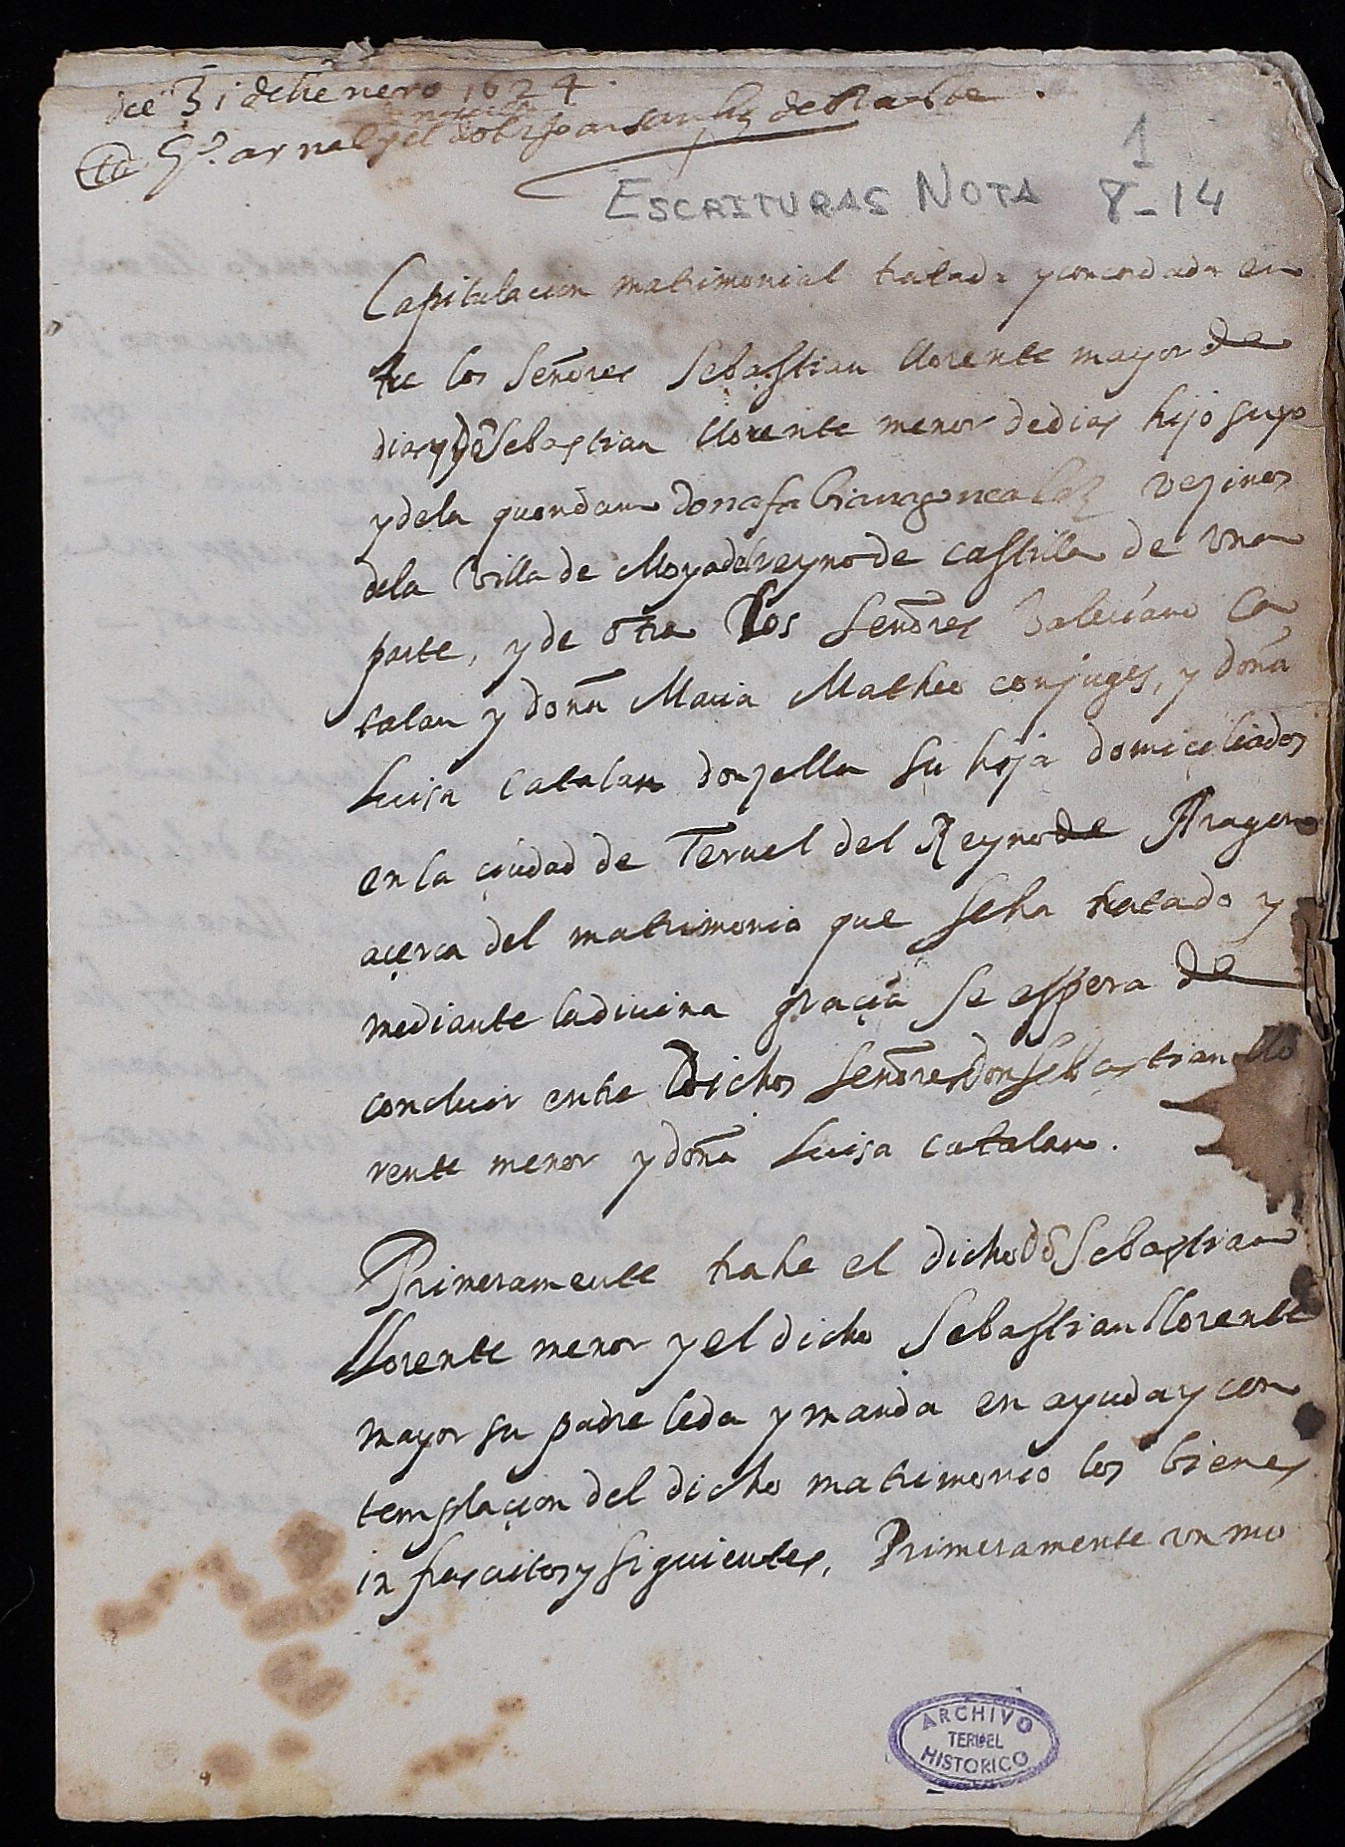 die 31 de henero 1624
1
ESCRITURAS NOTA 8-14
Capitulacion matrimonial tratada y concordada en
tre los Señores Sebastian llorente mayor de
dias y Dō Sebastian llorente menor de dias hijo suyo
y dela quondam Dona fabiana gonçalez vezinos
dela Villa de Moya del reyno de castilla de una
parte, y de otra los Señores Valeriano Ca
talan y doña Maria Matheo conjuges, y doña
Luisa Catalan donzella su hija domiciliados
en la çiudad de Teruel del Reyno de Aragon
açerca del matrimonio que se ha tratado y
mediante la divina graçia se espera de
concluir entre Dichos Señores Don Sebastian llo
rente menor y doña Luisa Catalan.
Primeramente trahe el dicho Dō Sebastian
llorente menor y el dicho Sebastian llorente
mayor su padre le da y manda en ayuda y con
templaçion del dicho matrimonio los bienes
infrascritos y siguientes, Primeramente un mo
ARCHIVO
TERUEL
HISTORICO